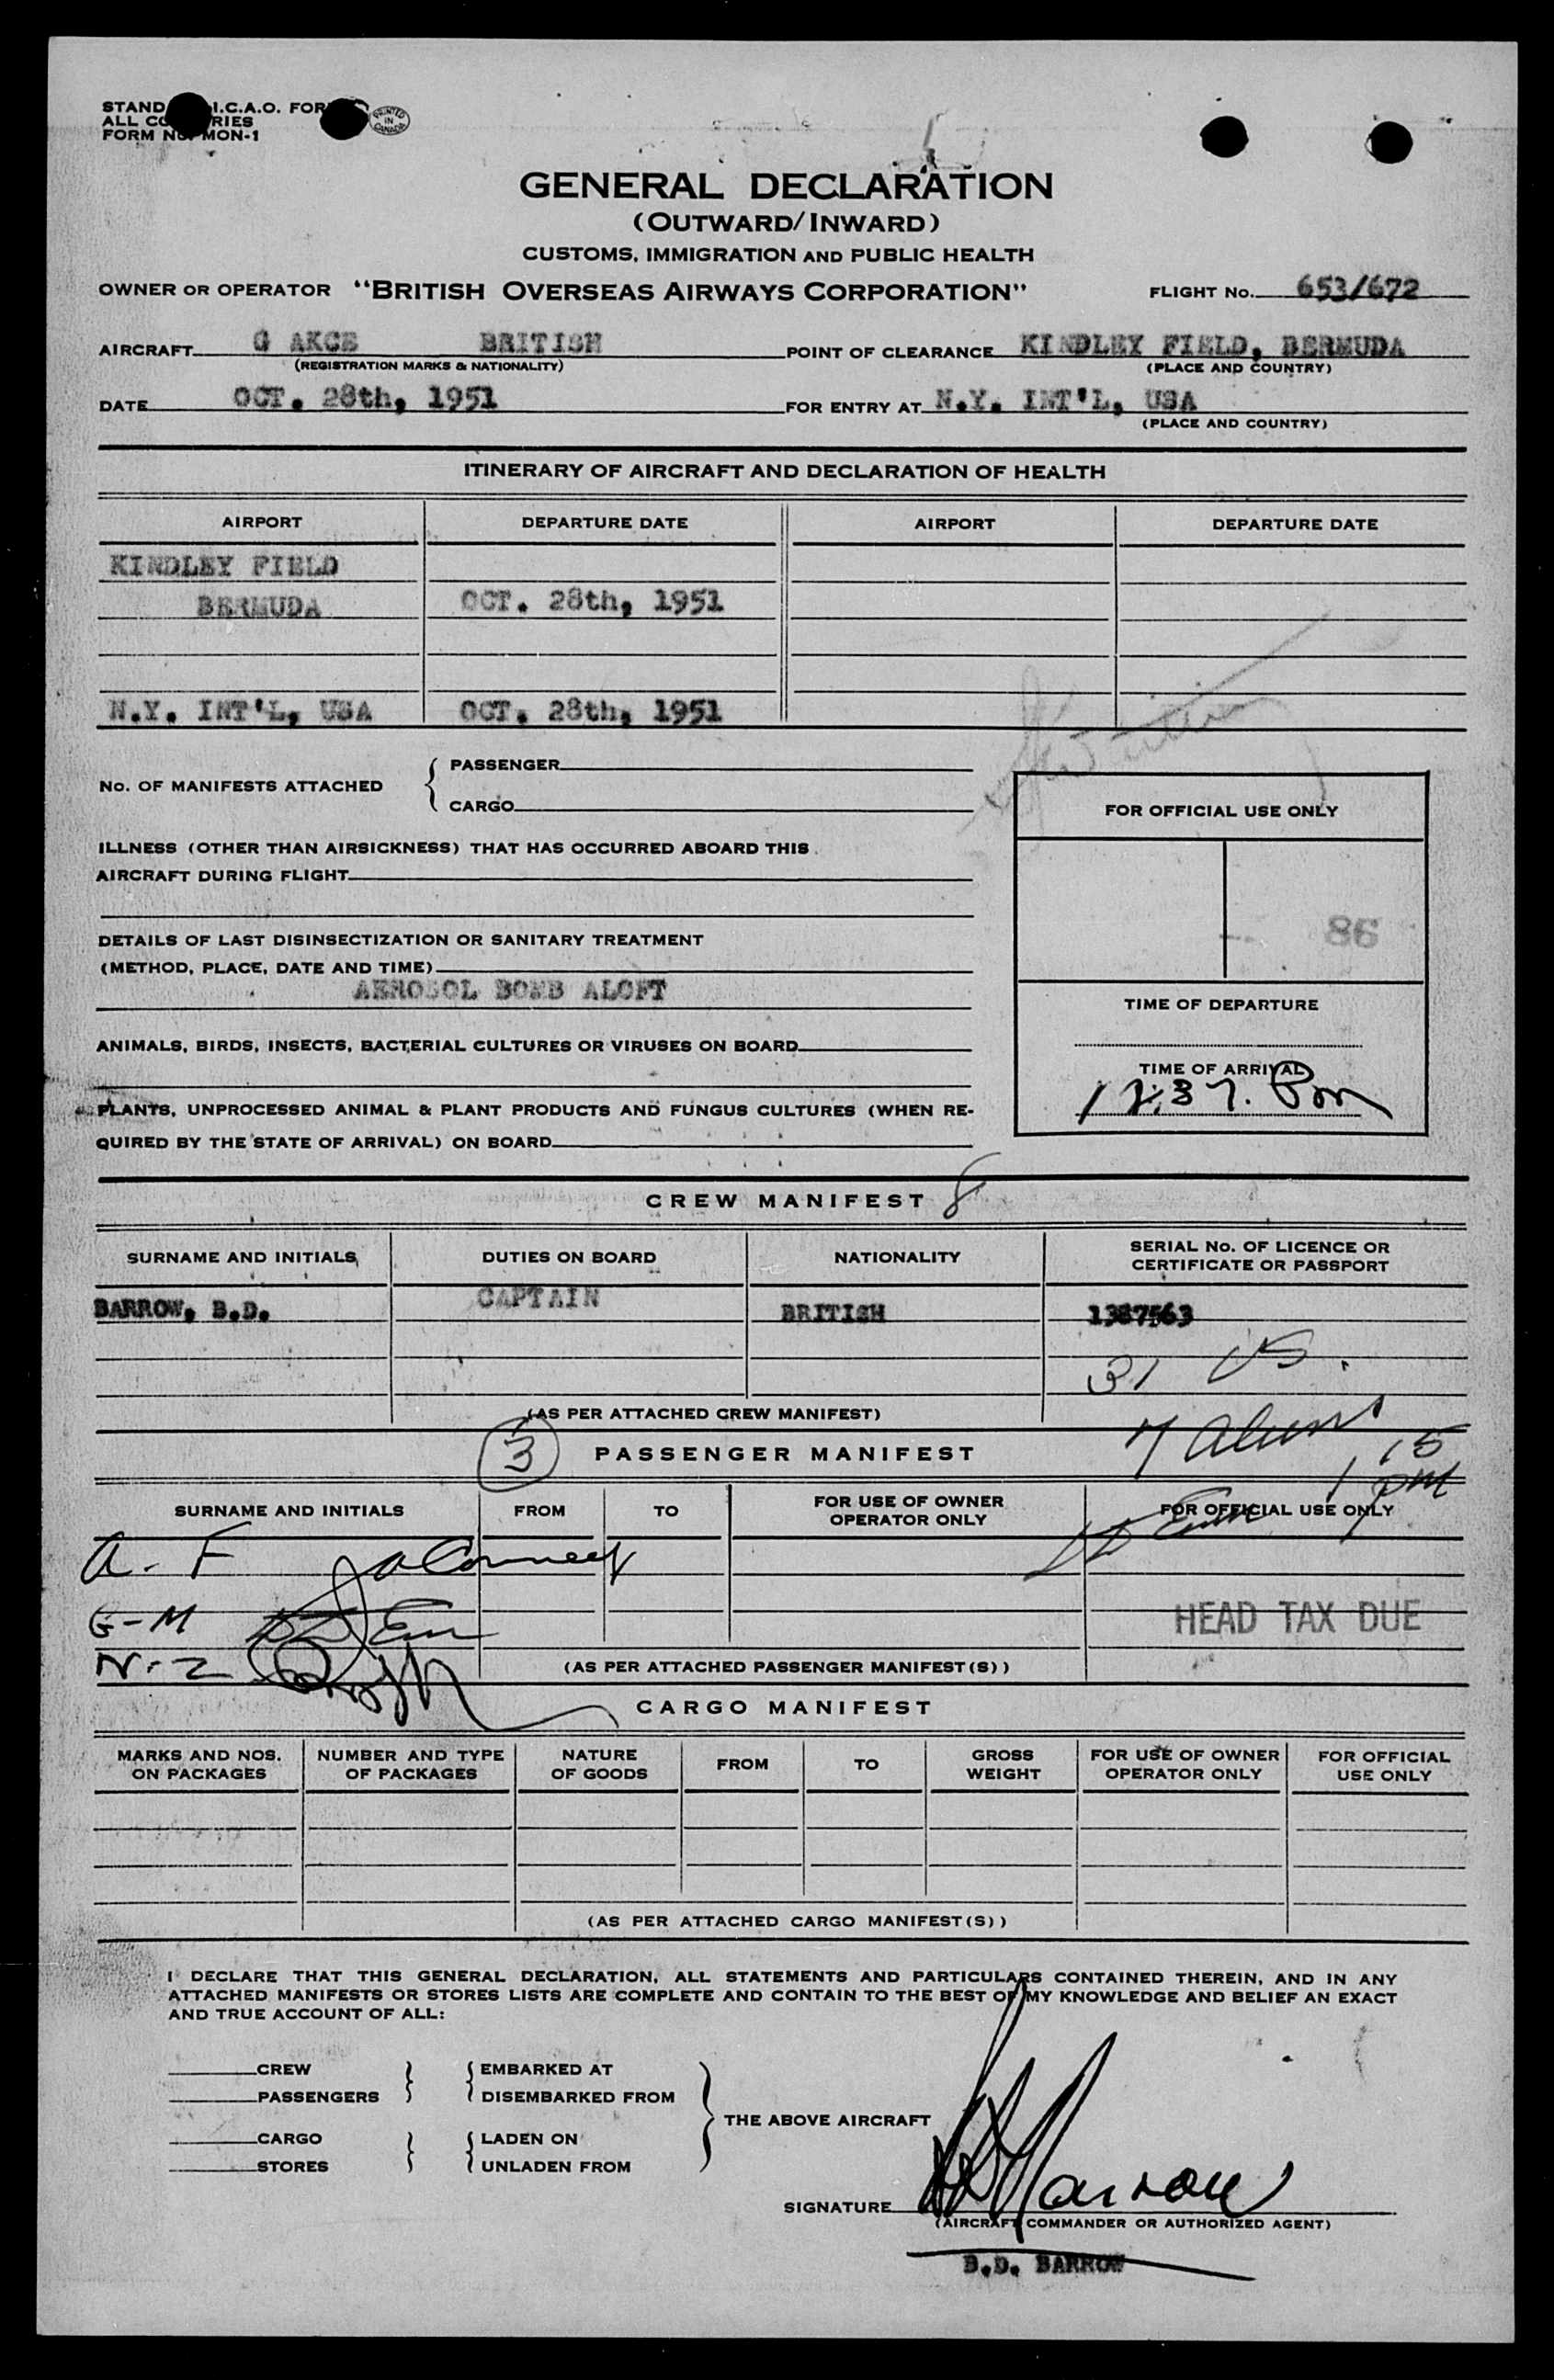 STAND I.C.A.O. FOR
ALL CO RIES
FORM No. MON-1
PRINTED IN CANADA
GENERAL DECLARATION
(OUTWARD/INWARD)
CUSTOMS, IMMIGRATION AND PUBLIC HEALTH
OWNER OR OPERATOR "BRITISH OVERSEAS AIRWAYS CORPORATION" FLIGHT No. 653/672
AIRCRAFT G AKCE BRITISH POINT OF CLEARANCE KINDLEY FIELD, BERMUDA
(REGISTRATION MARKS & NATIONALITY) (PLACE AND COUNTRY)
DATE OCT. 28th, 1951 FOR ENTRY AT N.Y. INT'L, USA
(PLACE AND COUNTRY)
ITINERARY OF AIRCRAFT AND DECLARATION OF HEALTH
AIRPORT DEPARTURE DATE AIRPORT DEPARTURE DATE
KINDLEY FIELD
BERMUDA OCT. 28th, 1951
N.Y. INT'L, USA OCT. 28th, 1951
No. OF MANIFESTS ATTACHED { PASSENGER
CARGO
FOR OFFICIAL USE ONLY
ILLNESS (OTHER THAN AIRSICKNESS) THAT HAS OCCURRED ABOARD THIS
AIRCRAFT DURING FLIGHT
86
DETAILS OF LAST DISINSECTIZATION OR SANITARY TREATMENT
(METHOD, PLACE, DATE AND TIME)
AEROSOL BOMB ALOFT
TIME OF DEPARTURE
ANIMALS, BIRDS, INSECTS, BACTERIAL CULTURES OR VIRUSES ON BOARD
TIME OF ARRIVAL
12:37. Pm
PLANTS, UNPROCESSED ANIMAL & PLANT PRODUCTS AND FUNGUS CULTURES (WHEN RE-
QUIRED BY THE STATE OF ARRIVAL) ON BOARD
CREW MANIFEST 8
SURNAME AND INITIALS DUTIES ON BOARD NATIONALITY SERIAL No. OF LICENCE OR
CERTIFICATE OR PASSPORT
BARROW, B.D. CAPTAIN BRITISH 1387563
31 US.
(AS PER ATTACHED CREW MANIFEST)
7 Aliens
3 PASSENGER MANIFEST
1 15 PM
SURNAME AND INITIALS FROM TO FOR USE OF OWNER
OPERATOR ONLY FOR OFFICIAL USE ONLY
A - F
G - M
HEAD TAX DUE
N - Z
(AS PER ATTACHED PASSENGER MANIFEST(S))
CARGO MANIFEST
MARKS AND NOS.
ON PACKAGES NUMBER AND TYPE
OF PACKAGES NATURE
OF GOODS FROM TO GROSS
WEIGHT FOR USE OF OWNER
OPERATOR ONLY FOR OFFICIAL
USE ONLY
(AS PER ATTACHED CARGO MANIFEST(S))
I DECLARE THAT THIS GENERAL DECLARATION, ALL STATEMENTS AND PARTICULARS CONTAINED THEREIN, AND IN ANY
ATTACHED MANIFESTS OR STORES LISTS ARE COMPLETE AND CONTAIN TO THE BEST OF MY KNOWLEDGE AND BELIEF AN EXACT
AND TRUE ACCOUNT OF ALL:
CREW } { EMBARKED AT
PASSENGERS } { DISEMBARKED FROM
THE ABOVE AIRCRAFT
CARGO } { LADEN ON
STORES } { UNLADEN FROM
SIGNATURE BD Barrow
(AIRCRAFT COMMANDER OR AUTHORIZED AGENT)
B.D. BARROW